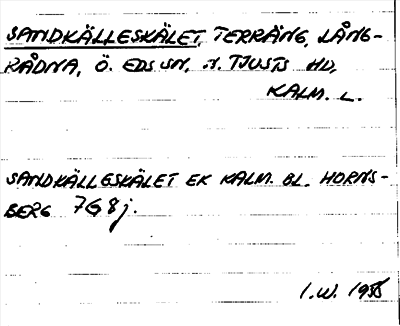 SANDKÄLLESKÄLET, TERRÄNG, LÅNG-
RÅDNA, Ö. EDS SN, N. TJUSTS HD,
KALM. L.
SANDKÄLLESKÄLET EK KALM. BL. HORNS-
BERG 7G8j.
I.W.